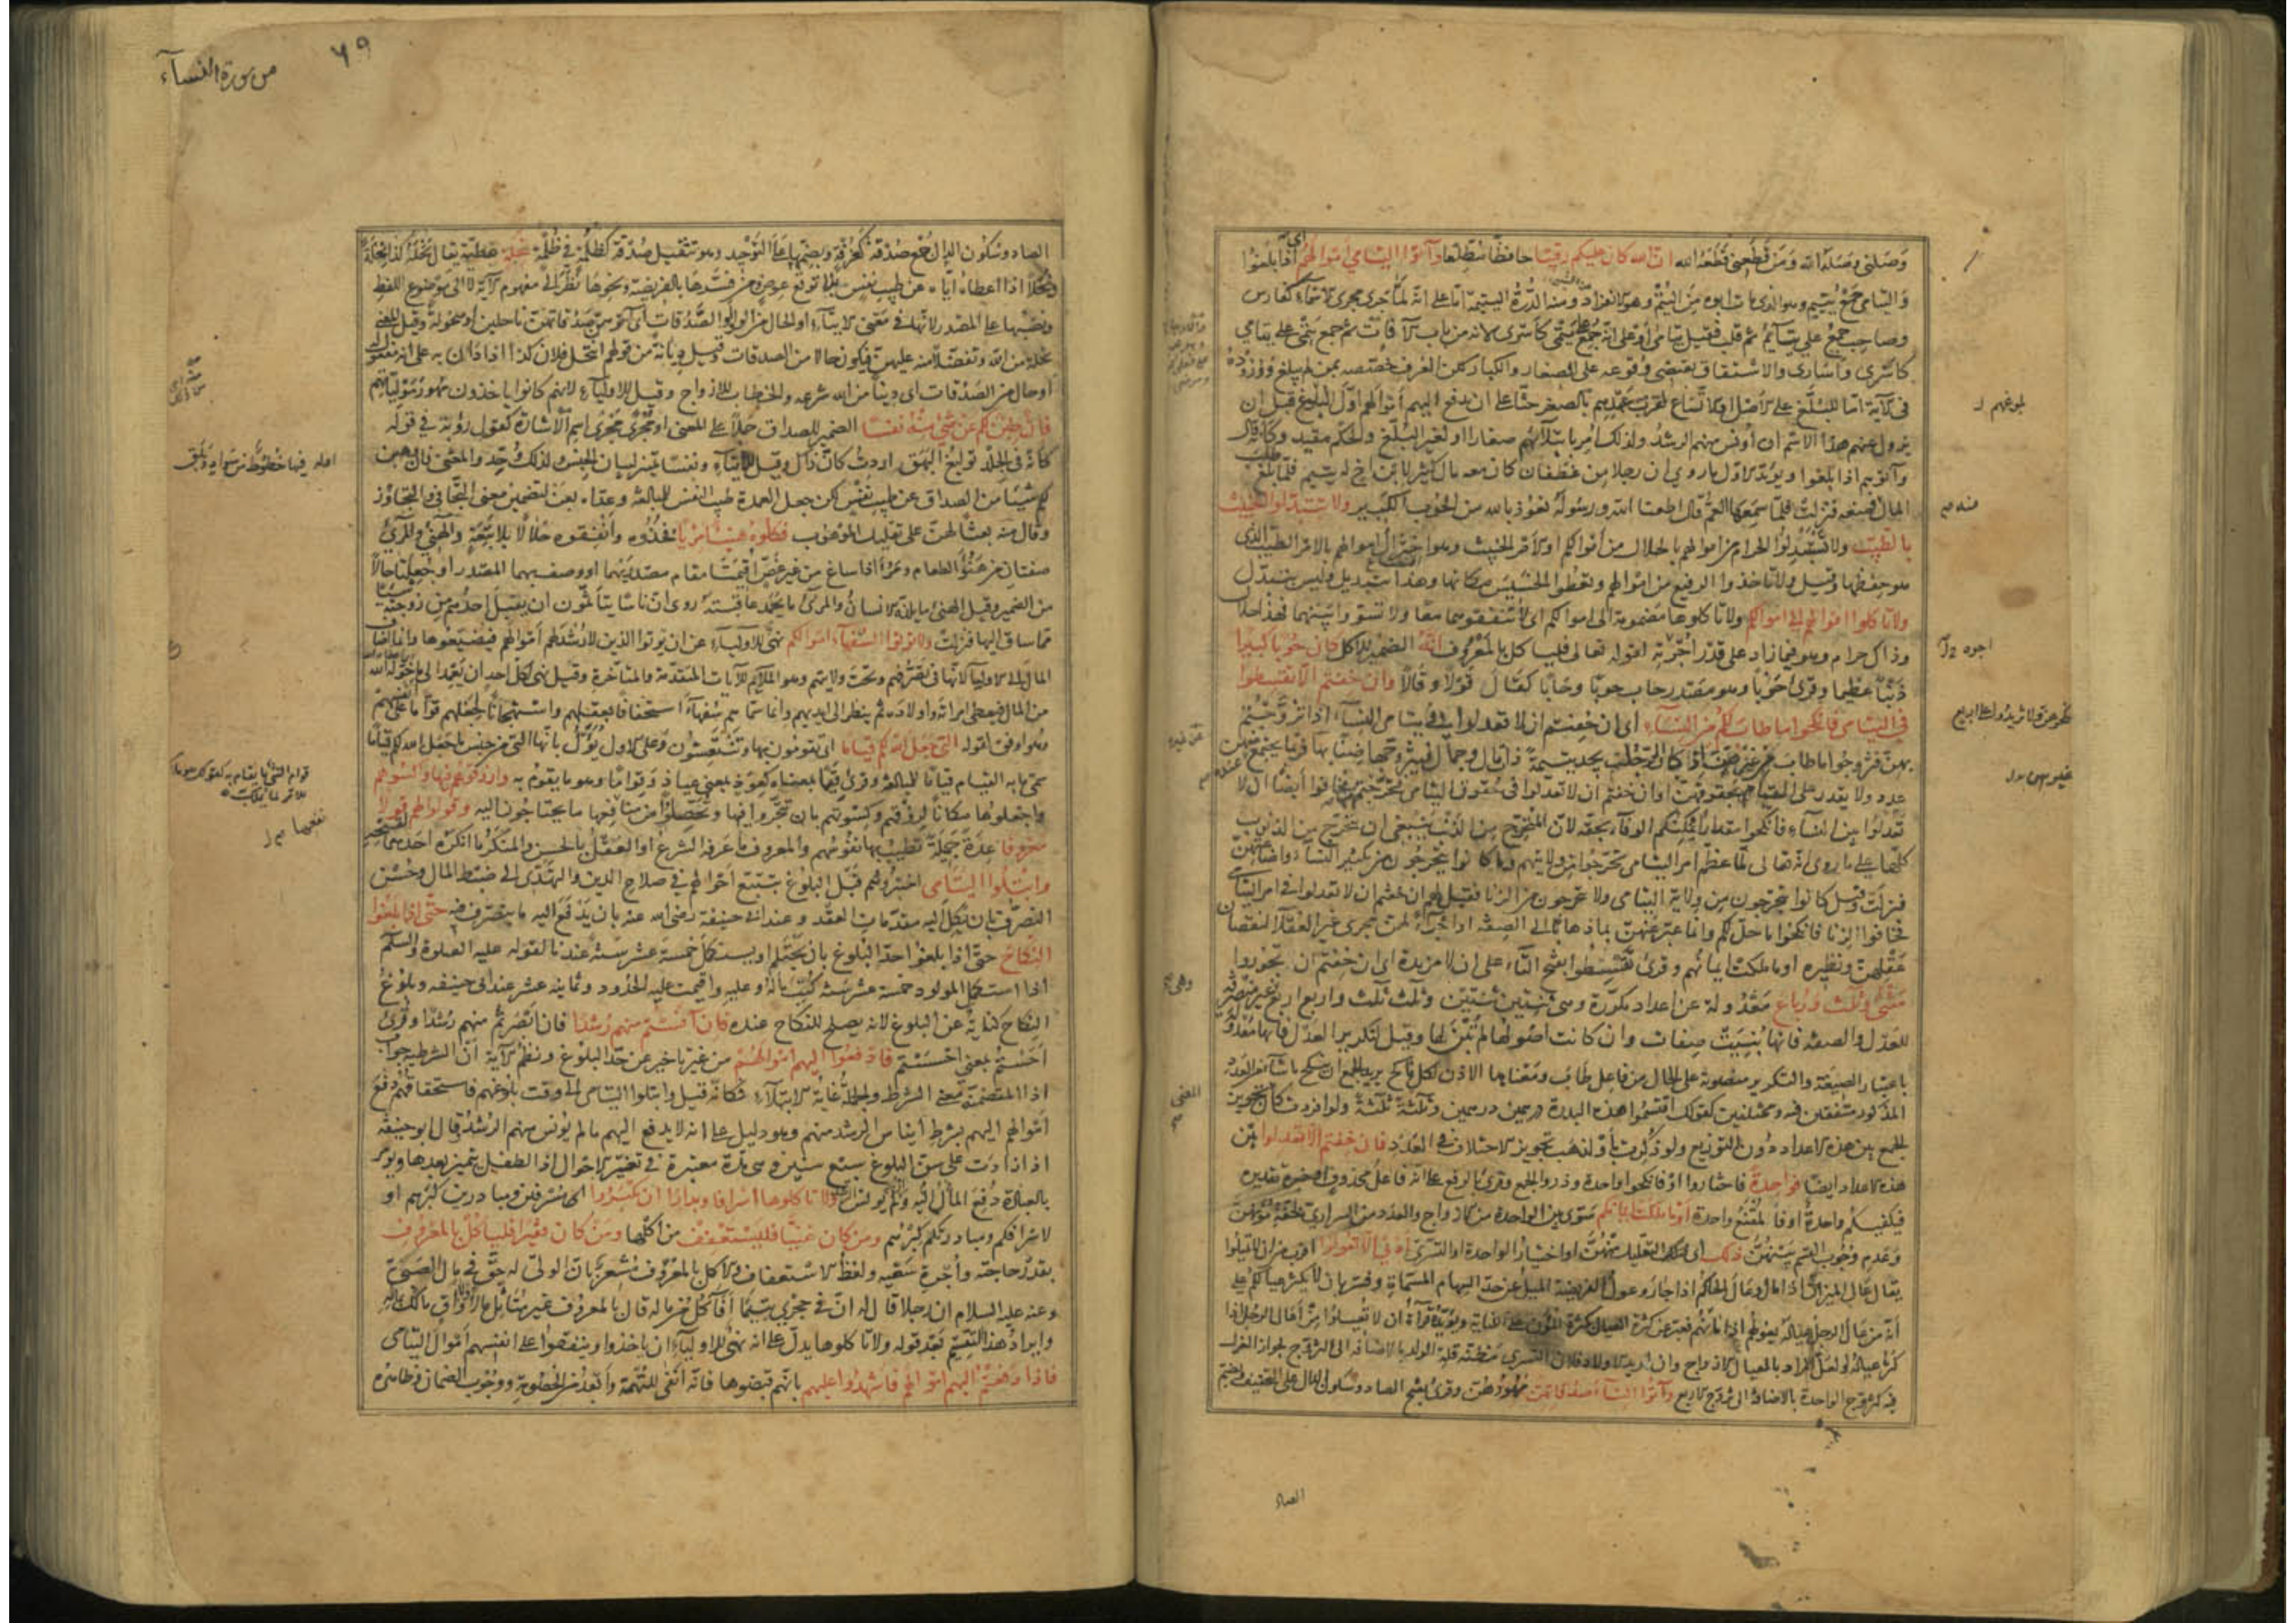 وصلني وصله الله ومن قطعني قطعه الله ان الله كان عليكم رقيبا حافظا مطلعا وآتوا اليتامى اموالهم اي اذا بلغوا
واليتامى جمع يتيم وهو الذي مات ابوه من اليتم وهو الانفراد ومنه الدرة اليتيمة اما على انه لما جرى مجرى الاسماء كفارس
وصاحب جمع على يتايم ثم قلب فقيل يتامى او على انه جمع على يتمى كاسرى لانه من باب الآفات ثم جمع يتمى على يتامى
كاسرى واسارى والاشتقاق يقتضي وقوعه على الصغار والكبار لكن العرف خصصه بمن لم يبلغ ووروده
في الآية اما للبلغ على الاصل او الاتساع لقرب عهدهم بالصغر حثا على ان يدفع اليهم اموالهم اول البلوغ قبل ان
يزول عنهم هذا الاسم ان أونس منهم الرشد ولذلك امر بابتلائهم صغارا او لغير البلغ والحكم مقيد وكانه قال
وآتوهم اذا بلغوا ويؤيد الاول ما روي ان رجلا من غطفان كان معه مال كثير لابن اخ له يتيم فلما بلغ طلب
المال فمنعه فنزلت فلما سمعها العم قال اطعنا الله ورسوله نعوذ بالله من الحوب الكبير ولا تتبدلوا الخبيث
بالطيب ولا تستبدلوا الحرام من اموالهم بالحلال من اموالكم او الامر الخبيث وهو اختزال اموالهم بالامر الطيب الذي
هو حفظها وقيل ولا تاخذوا الرفيع من اموالهم وتعطوا الخسيس مكانها وهذا تبديل وليس بتبدل
ولا تاكلوا اموالهم الى اموالكم ولا تاكلوها مضمومة الى اموالكم اي لا تنفقوهما معا ولا تسووا بينهما فهذا حلال
وذاك حرام وهو فيما زاد على قدر اجرته لقوله تعالى فلياكل بالمعروف انه الضمير للاكل كان حوبا كبيرا
ذنبا عظيما وقرئ حوبا وهو مصدر حاب حوبا وحابا كقال قولا وقالا وان خفتم الا تقسطوا
في اليتامى فانكحوا ما طاب لكم من النساء اي ان خفتم ان لا تعدلوا في يتامى النساء اذا تزوجتم
بهن فتزوجوا ما طاب لكم من غيرهن اذ كان الرجل يجد يتيمة ذات مال وجمال فيتزوجها ضنا بها فربما يجتمع عنده منهن
عدد ولا يقدر على القيام بحقوقهن او ان خفتم ان لا تعدلوا في حقوق اليتامى فتحرجتم منها فخافوا ايضا ان لا
تعدلوا بين النساء فانكحوا مقدارا يمكنكم الوفاء بحقه لان المتحرج من الذنب ينبغي ان يتحرج من الذنوب
كلها على ما روي انه تعالى لما عظم امر اليتامى تحرجوا من ولايتهم وما كانوا يتحرجون من تكثير النساء واضاعتهن
فنزلت وقيل كانوا يتحرجون من ولاية اليتامى ولا يتحرجون من الزنا فقيل لهم ان خفتم ان لا تعدلوا في امر اليتامى
فخافوا الزنا فانكحوا ما حل لكم وانما عبر عنهن بما ذهابا الى الصفة او اجراء لهن مجرى غير العقلاء لنقصان
عقلهن ونظيره او ما ملكت ايمانهم وقرئ تقسطوا بفتح التاء على ان لا مزيدة اي ان خفتم ان تجوروا
مثنى وثلث ورباع معدولة عن اعداد مكررة وهي ثنتين ثنتين وثلث ثلث واربع اربع غير منصرفة
للعدل والصفة فانها بنيت صفات وان كانت اصولها لم تبن لها وقيل لتكرير العدل فانها معدولة
باعتبار الصيغة والتكرير منصوبة على الحال من فاعل طاب ومعناها الاذن لكل ناكح يريد الجمع ان ينكح ما شاء من العدد
المذكور متفقين فيه ومختلفين كقولك اقتسموا هذه البدرة درهمين درهمين وثلثة ثلثة ولو افردت كان تجويز
الجمع بين هذه الاعداد دون التوزيع ولو ذكرت باو لذهب تجويز الاختلاف في العدد فان خفتم الا تعدلوا بين
هذه الاعداد ايضا فواحدة فاختاروا او فانكحوا واحدة وذروا الجمع وقرئ بالرفع على انه فاعل محذوف او خبره تقديره
فيكفيكم واحدة او فالمقنع واحدة او ما ملكت ايمانكم سوى بين الواحدة من الازواج والعدد من السراري لخفة مؤنهن
وعدم وجوب القسم بينهن ذلك اي التقليل منهن او اختيار الواحدة او التسري ادنى الا تعولوا اقرب من ان لا تميلوا
يقال عال الميزان اذا مال وعال الحاكم اذا جار وعول الفريضة الميل عن حد السهام المسماة وفسر بان لا يكثر عيالكم على
انه من عال الرجل عياله يعولهم اذا مانهم فعبر عن كثرة العيال بكثرة المؤن على الكناية ويؤيده قراءة ان لا تعيلوا من اعال الرجل اذا
كثر عياله ولعل المراد بالعيال الازواج وان اريد الاولاد فلان التسري مظنة قلة الولد بالاضافة الى التزوج لجواز العزل
فيه كتزوج الواحدة بالاضافة الى تزوج الاربع وآتوا النساء صدقاتهن مهورهن وقرئ بفتح الصاد وسكون الدال على التخفيف وبضم
بلوغهم
منه
اجره
غيرهن
وهي
المعنى
الصاد
من سورة النسآء
٦٩
الصاد وسكون الدال جمع صدقة كغرفة وبضمهما على التوحيد وهو تثقيل صدقة كظلمة في ظلمة نحلة عطية يقال نحله كذا نحلة
ونحلا اذا اعطاه اياه عن طيب نفس بلا توقع عوض ومن فسرها بالفريضة ونحوها نظر الى مفهوم الآية لا الى موضوع اللفظ
ونصبها على المصدر لانها في معنى الايتاء او الحال من الواو او الصدقات اي آتوهن صدقاتهن ناحلين او منحولة وقيل المعنى
نحلة من الله وتفضلا منه عليهن فيكون حالا من الصدقات وقيل ديانة من قولهم انتحل فلان كذا اذا دان به على انه مفعول له
او حال من الصدقات اي دينا من الله شرعه والخطاب للازواج وقيل للاولياء لانهم كانوا ياخذون مهور مولياتهم
فان طبن لكم عن شئ منه نفسا الضمير للصداق حملا على المعنى او مجرى مجرى اسم الاشارة كقول رؤبة في قوله
كانه في الجلد توليع البهق اردت كان ذاك وقيل للايتاء ونفسا تمييز لبيان الجنس ولذلك وحد والمعنى فان وهبن
لكم شيئا من الصداق عن طيب نفس لكن جعل العمدة طيب النفس للمبالغة وعداه بعن لتضمين معنى التجافي والتجاوز
وقال منه بعثا لهن على تقليل الموهوب فكلوه هنيئا مريئا فخذوه وانفقوه حلالا بلا تبعة والهنئ والمرئ
صفتان من هنؤ الطعام ومرأ اذا ساغ من غير غصص اقيمتا مقام مصدريهما او وصف بهما المصدر او جعلتا حالا
من الضمير وقيل الهنئ ما يلذه الانسان والمرئ ما يحمد عاقبته روي ان ناسا يتأثمون ان يقبل احدهم من زوجته شيئا
مما ساق اليها فنزلت ولا تؤتوا السفهاء اموالكم نهي للاولياء عن ان يؤتوا الذين لا رشد لهم اموالهم فيضيعوها وانما اضاف
المال الى الاولياء لانها في تصرفهم وتحت ولايتهم وهو الملائم للآيات المتقدمة والمتاخرة وقيل نهي لكل احد ان يعمد الى ما خوله الله
من المال فيعطي امراته واولاده ثم ينظر الى ايديهم وانما سماهم سفهاء استخفافا بعقلهم واستهجانا لجعلهم قواما على انفسهم
وهو اوفق لقوله التي جعل الله لكم قياما اي تقومون بها وتنتعشون وعلى الاول يؤول بانها التي من جنس ما جعل الله لكم قياما
سمي ما به القيام قياما للمبالغة وقرئ قيما بمعناه كعوذ بمعنى عياذ وقواما وهو ما يقوم به وارزقوهم فيها واكسوهم
واجعلوها مكانا لرزقهم وكسوتهم بان تتجروا فيها وتحصلوا من منافعها ما يحتاجون اليه وقولوا لهم قولا
معروفا عدة جميلة تطيب بها نفوسهم والمعروف ما عرفه الشرع او العقل بالحسن والمنكر ما انكره احدهما لقبحه
وابتلوا اليتامى اختبروهم قبل البلوغ بتتبع احوالهم في صلاح الدين والتهدي الى ضبط المال وحسن
التصرف بان يكل اليه مقدمات العقد وعند ابي حنيفة رضي الله عنه بان يدفع اليه ما يتصرف فيه حتى اذا بلغوا
النكاح حتى اذا بلغوا حد البلوغ بان يحتلم او يستكمل خمسة عشر سنة عندنا لقوله عليه الصلوة والسلم
اذا استكمل المولود خمسة عشر سنة كتب ماله وعليه واقيمت عليه الحدود وثمانية عشر عند ابي حنيفة وبلوغ
النكاح كناية عن البلوغ لانه يصلح للنكاح عنده فان آنستم منهم رشدا فان ابصرتم منهم رشدا وقرئ
احستم بمعنى احسستم فادفعوا اليهم اموالهم من غير تاخير عن حد البلوغ ونظم الآية ان الشرطية جواب
اذا المتضمنة معنى الشرط والجملة غاية الابتلاء فكانه قيل وابتلوا اليتامى الى وقت بلوغهم فاستحقاقهم دفع
اموالهم اليهم بشرط ايناس الرشد منهم وهو دليل على انه لا يدفع اليهم ما لم يؤنس منهم الرشد وقال ابو حنيفة
اذا زادت على سن البلوغ سبع سنين وهي مدة معتبرة في تغير الاحوال اذ الطفل يتميز بعدها ويؤمر
بالعبادة دفع المال اليه وان لم يونس الرشد ولا تاكلوها اسرافا وبدارا ان يكبروا اي مسرفين ومبادرين كبرهم او
لاسرافكم ومبادرتكم كبرهم ومن كان غنيا فليستعفف من اكلها ومن كان فقيرا فلياكل بالمعروف
بقدر حاجته واجرة سعيه ولفظ الاستعفاف والاكل بالمعروف مشعر بان الولي له حق في مال الصبي
وعنه عليه السلام ان رجلا قال له ان في حجري يتيما أفآكل من ماله قال بالمعروف غير متأثل مالا ولا واق مالك بماله
وايراد هذا التقسيم بعد قوله ولا تاكلوها يدل على انه نهي للاولياء ان ياخذوا وينفقوا على انفسهم اموال اليتامى
فاذا دفعتم اليهم اموالهم فاشهدوا عليهم بانهم قبضوها فانه انفى للتهمة وابعد من الخصومة ووجوب الضمان وظاهره
اوله فيها خطوط من سواد وبلق